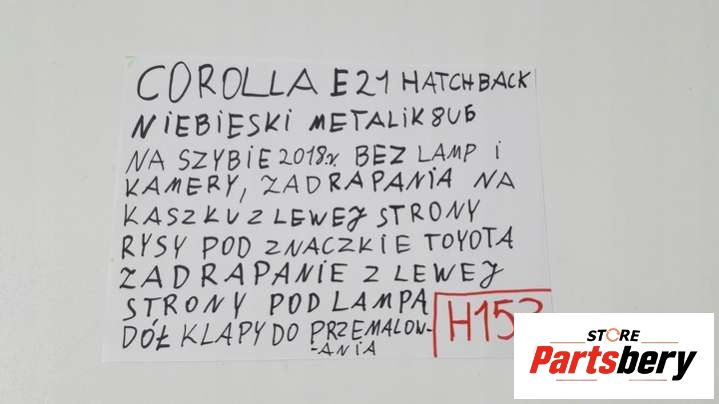 COROLLA E21 HATCHBACK
NIEBIESKI METALIK 8U6
NA SZYBIE 2018r. BEZ LAMP i
KAMERY, ZADRAPANIA NA
KASZKU Z LEWEJ STRONY
RYSY POD ZNACZKIE TOYOTA
ZADRAPANIE Z LEWEJ
STRONY POD LAMPĄ
DÓŁ KLAPY DO PRZEMALOW-
-ANIA
STORE
Partsbery